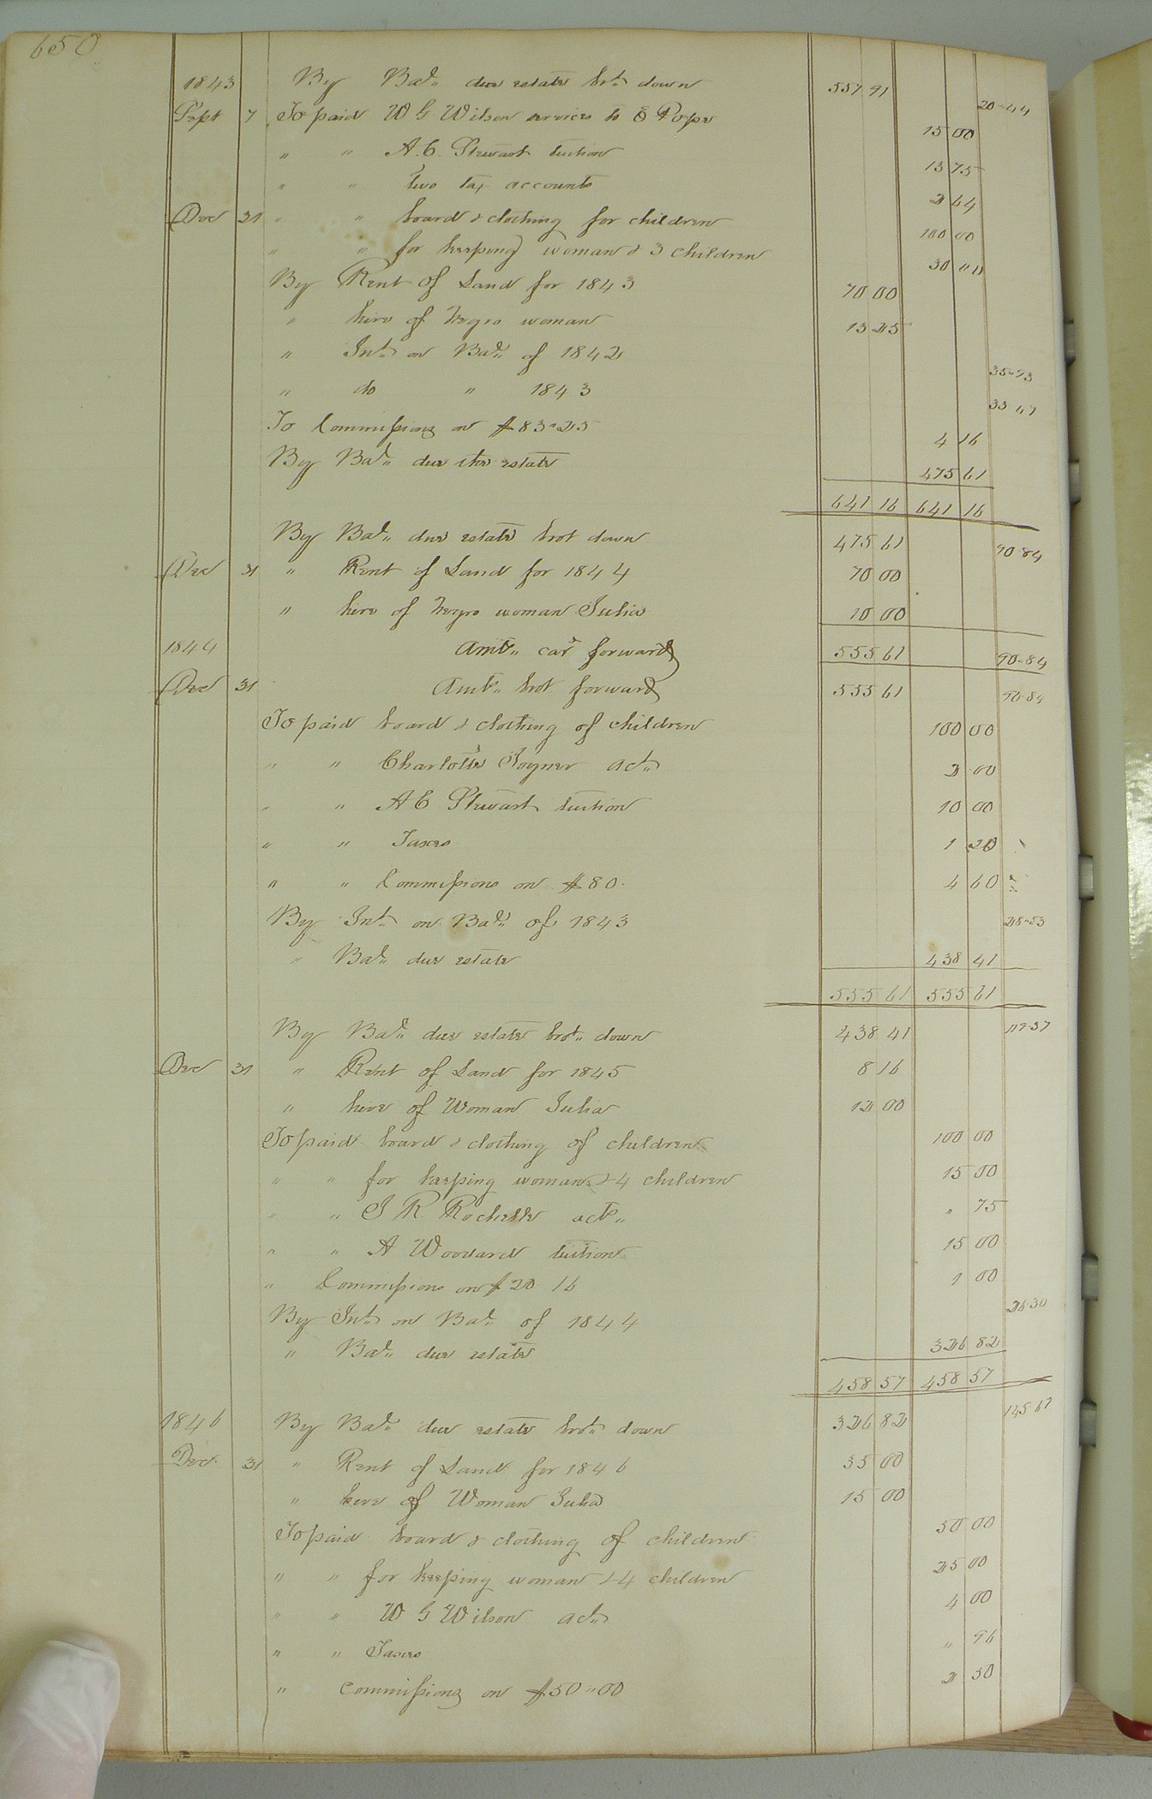 650
1843 By Bal. due estate brt. down 557 91 20-44
Sept 7 To paid W G Wilson services to Pope 15 00
" " A. C. Stewart tuition 13 75
" " two tax accounts 2 44
Dec 31 " " board & clothing for children 100 00
" " for keeping woman & 3 children 30 "11
By Rent of Land for 1843 70 00
" hire of negro woman 13 25
" Int. on Bal. of 1842 35-93
" do " 1843 33 47
To Commissions on $83-25 4 16
By Bal. due the estate 475 61
641 16 641 16
By Bal. due estate brot down 475 61 90-84
Dec 31 " Rent of Land for 1844 70 00
" hire of negro woman Julia 10 00
1844 Amt. card forward 555 61 90-84
Dec 31 Amt. brot forward 555 61 90-84
To paid board & clothing of children 100 00
" " Charlotte Joyner act. 2 00
" " A C Stewart tuition 10 00
" " Taxes 1 20
" " Commissions on $80. 4 00
By Int. on Bal. of 1843 28-53
" Bal. due estate 438 41
555 61 555 61
By Bal. due estate brot. down 438 41 119-37
Dec 31 " Rent of Land for 1845 8 16
" hire of Woman Julia 12 00
To paid board & clothing of children 100 00
" " for keeping woman & 4 children 15 00
" " J R Rochelle act. " 75
" " A Woodard tuition 15 00
" Commissions on $20 16 1 00
By Int. on Bal. of 1844 26-30
" Bal. due estate 326 82
458 57 458 57
1846 By Bal. due estate brot. down 326 82 145 67
Dec. 31 " Rent of Land for 1846 35 00
" hire of Woman Julia 15 00
To paid board & clothing of children 50 00
" " for keeping woman & 4 children 25 00
" " W G Wilson act. 4 00
" " Taxes " 96
" Commissions on $50"00 2 50